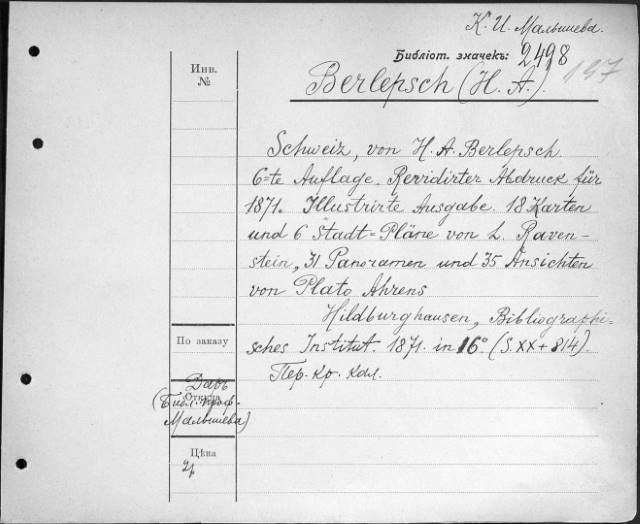 К. И. Малышева.
Библіот. значекъ: 2498
197
Berlepsch (H. A.).
Инв.
№
Schweiz, von H. A. Berlepsch
6=te Auflage. Revidirter Abdruck für
1871. Illustrirte Ausgabe. 18 Karten
und 6 Stadt=Pläne von L. Raven-
stein, 31 Panoramen und 35 Ansichten
von Plato Ahrens
Hildburghausen, Bibliographi-
sches Institut. 1871. in 16° (S. XX + 814).
Пер. кр. кол.
По заказу
Даръ
Откуда
(Библ. проф.
Малышева)
Цѣна
2р